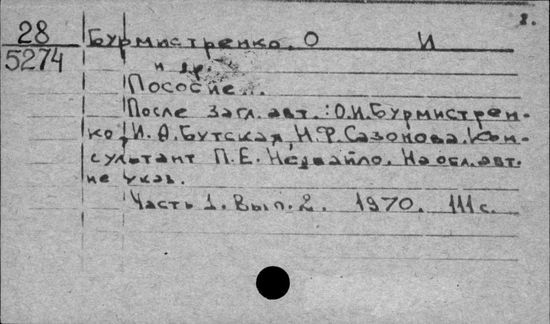 8.
28 Бурмистренко, О И
5274
и др.
Пособие...
После загл. авт.: О.И.Бурмистрен-
ко, И.Ф.Бутская, Н.Ф.Сазонова. Кон-
сультант П.Е.Недвайло. На обл. авт.
не указ.
Часть 1. Вып. 2. 1970. 111 с.